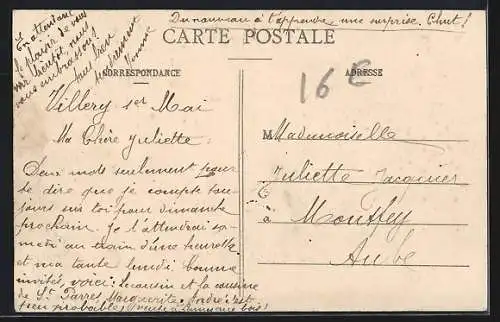 Du nouveau à t'apprendre, une surprise. Chut!
En attendant
le plaisir de vous
voir bientôt, nous
vous embrassons
CARTE POSTALE
CORRESPONDANCE
ADRESSE
16 E
Villery 1er Mai
Ma Chère Juliette,
Deux mots seulement pour
te dire que je compte tou
jours sur toi pour dimanche
prochain. Je t'attendrai sa-
medi au train d'une heure
et ma tante lundi. Comme
invités, voici: le cousin et la cousine
de St Parres, Marguerite, André: est
peu probable,
M Mademoiselle
Juliette Jacquier
à Montfey
Aube